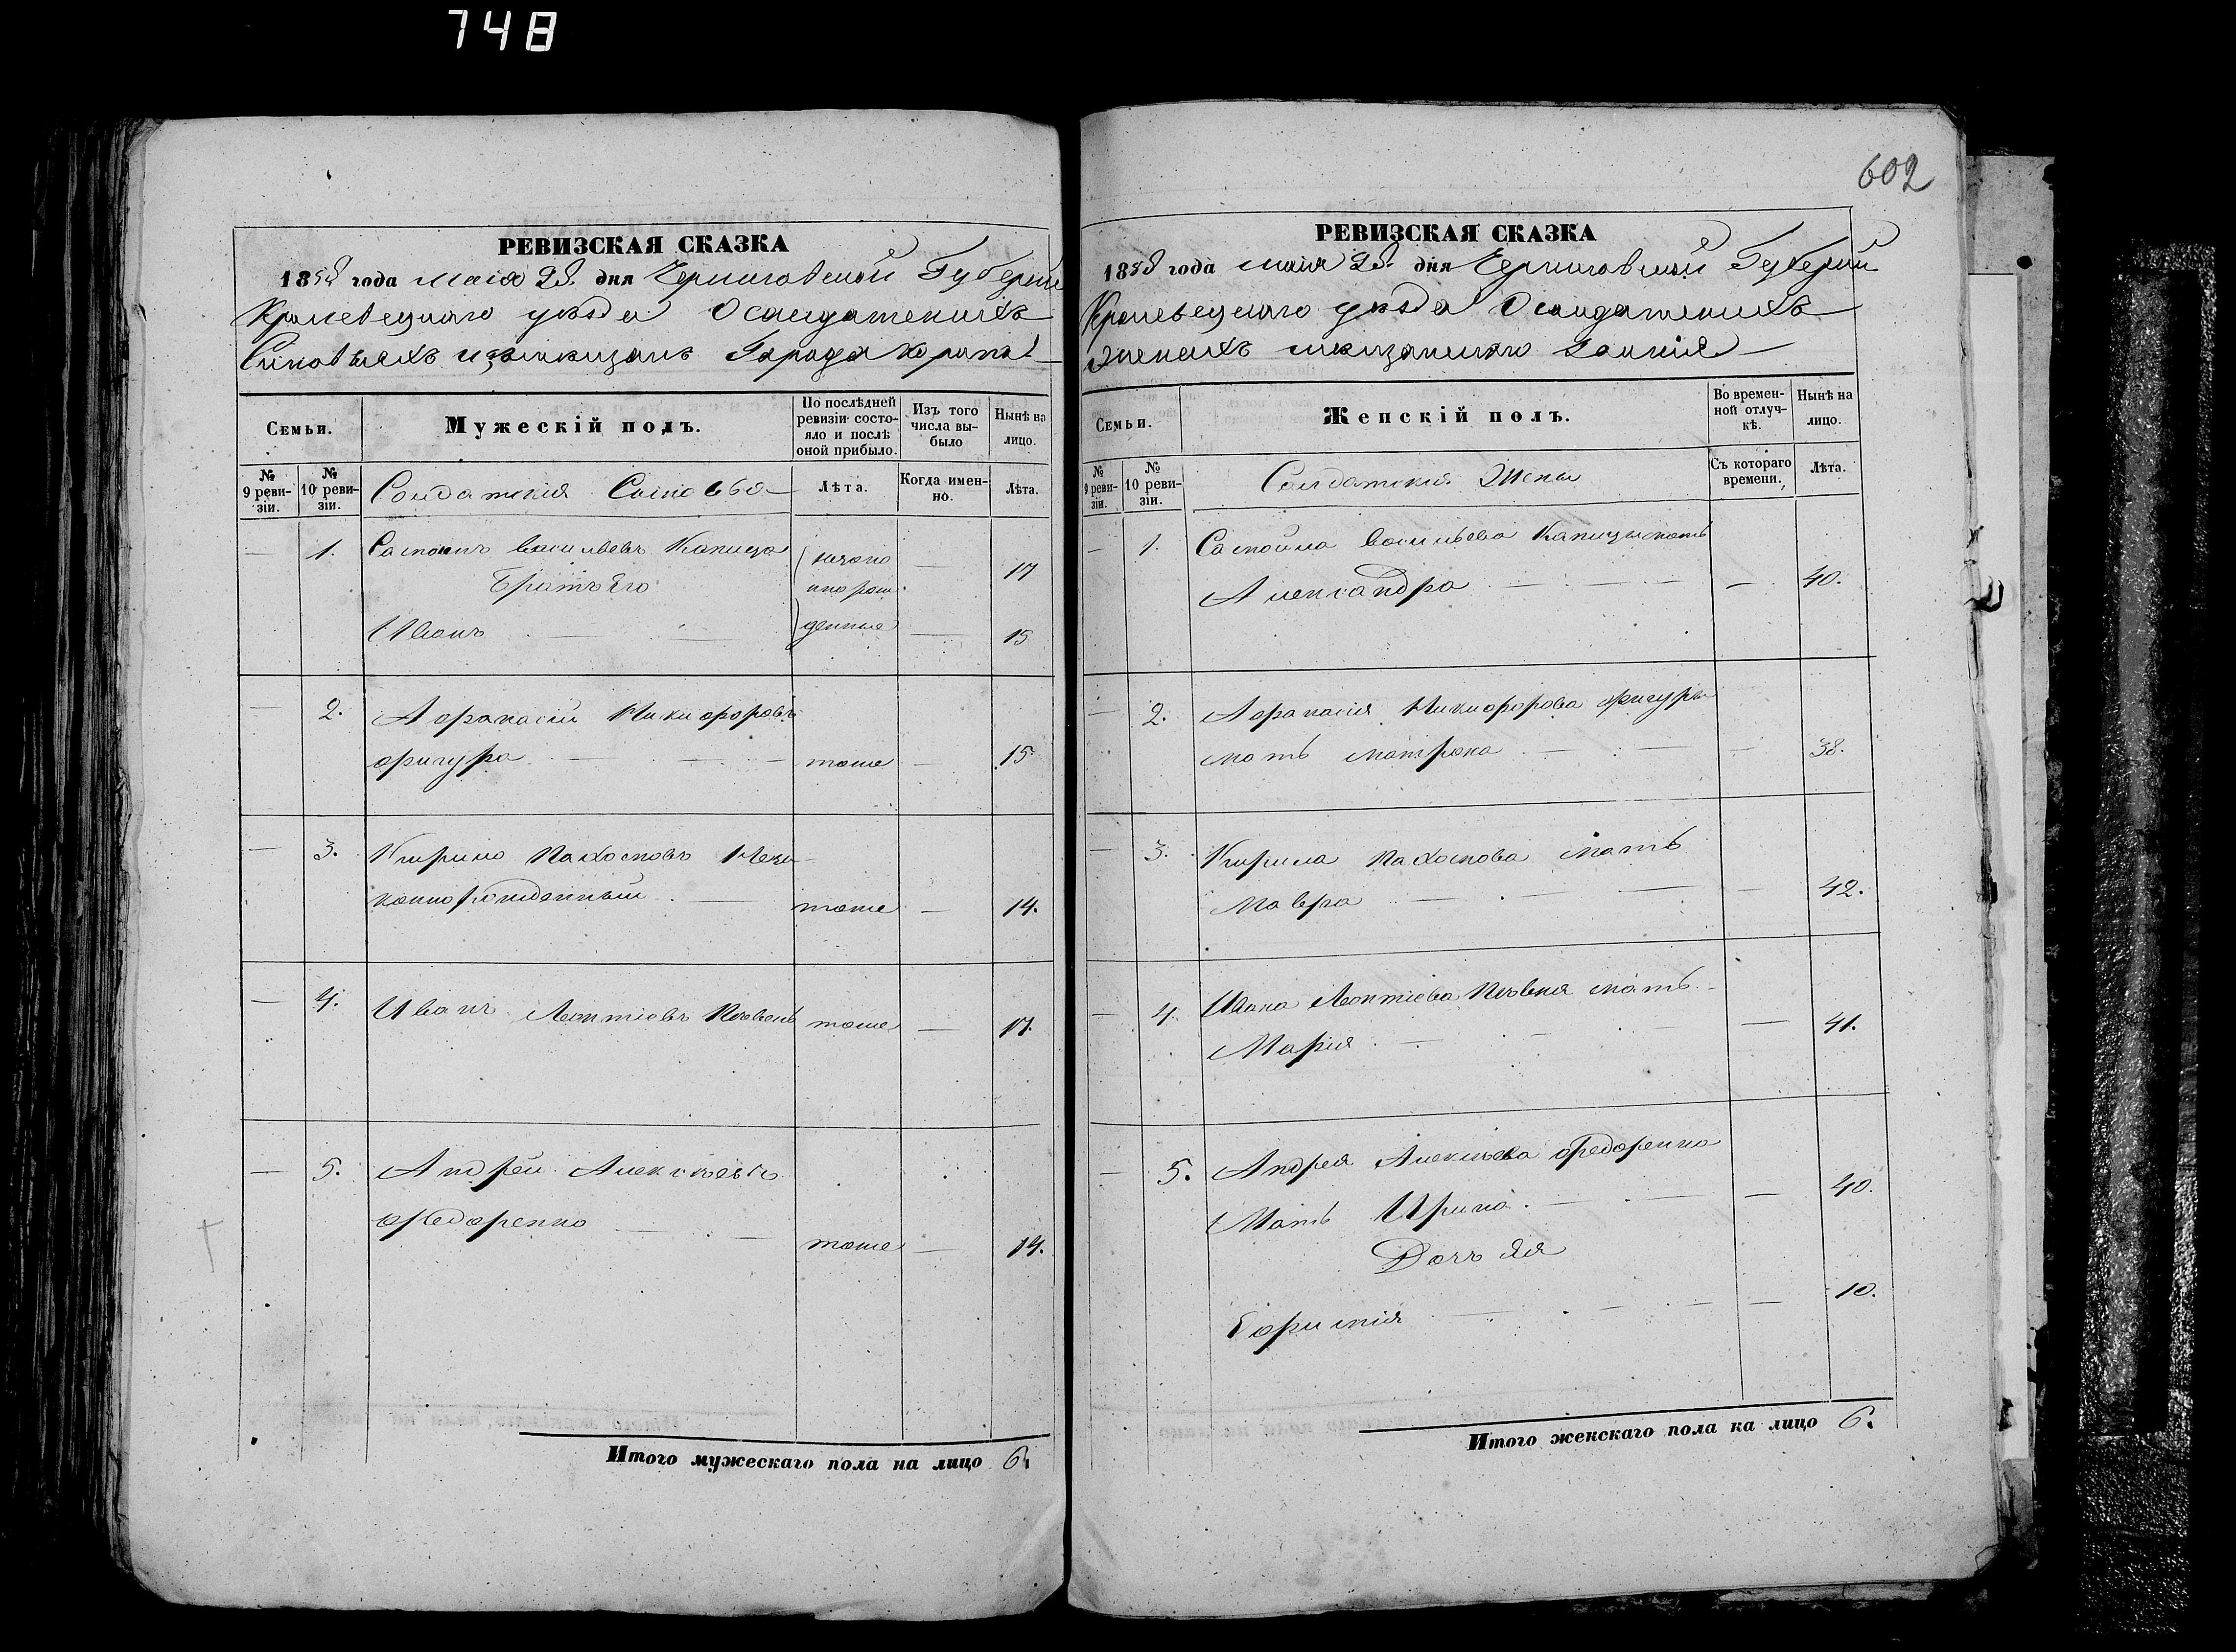 748
602
РЕВИЗСКАЯ СКАЗКА
1858 года маія 28 дня Черниговской Губерніи
Кролевецкаго уѣзда О Салдатскихъ
Синовьяхъ Города Коропа
Семьи.
Мужескій полъ.
По послѣдней ревизіи состояло и послѣ оной прибыло.
Изъ того числа выбыло
Нынѣ на лицо.
№ 9 ревизіи.
№ 10 ревизіи.
Солдатскія Сыновья
Лѣта.
Когда именно.
Лѣта.
— 1. Самоилъ Васильевъ Капица
Братъ Его
— 17
Иванъ — 15
денные
— 2. Афанасій Никифоровъ
фигура — тоже — 15
— 3. Кирило Пахомовъ
тоже — 14.
— 4. Иванъ Леонтіевъ тоже — 17.
— 5. Андрей Алексѣевъ
Федоренко — тоже — 14.
Итого мужескаго пола на лицо 6.
РЕВИЗСКАЯ СКАЗКА
1858 года маія 28 дня Черниговской Губерніи
Кролевецкаго уѣзда О солдатскихъ
женахъ
Семьи.
Женскій полъ.
Во временной отлучкѣ.
Нынѣ на лицо.
№ 9 ревизіи.
№ 10 ревизіи.
Солдатскія Жены
Съ котораго времени.
Лѣта.
— 1. Самойла Васильева Капицы мать
Александра — — 40.
— 2. Афанасія Никифорова фигуры
мать Матрона — — 38.
— 3. Кирила Пахомова мать
Мавра — — 42.
— 4. Ивана Леонтіева мать
Марія — — 41.
— 5. Андрея Алексѣева Федоренка
Мать Ирина. — — 40.
Дочъ Ея
Ефимія — — 10.
Итого женскаго пола на лицо 6.